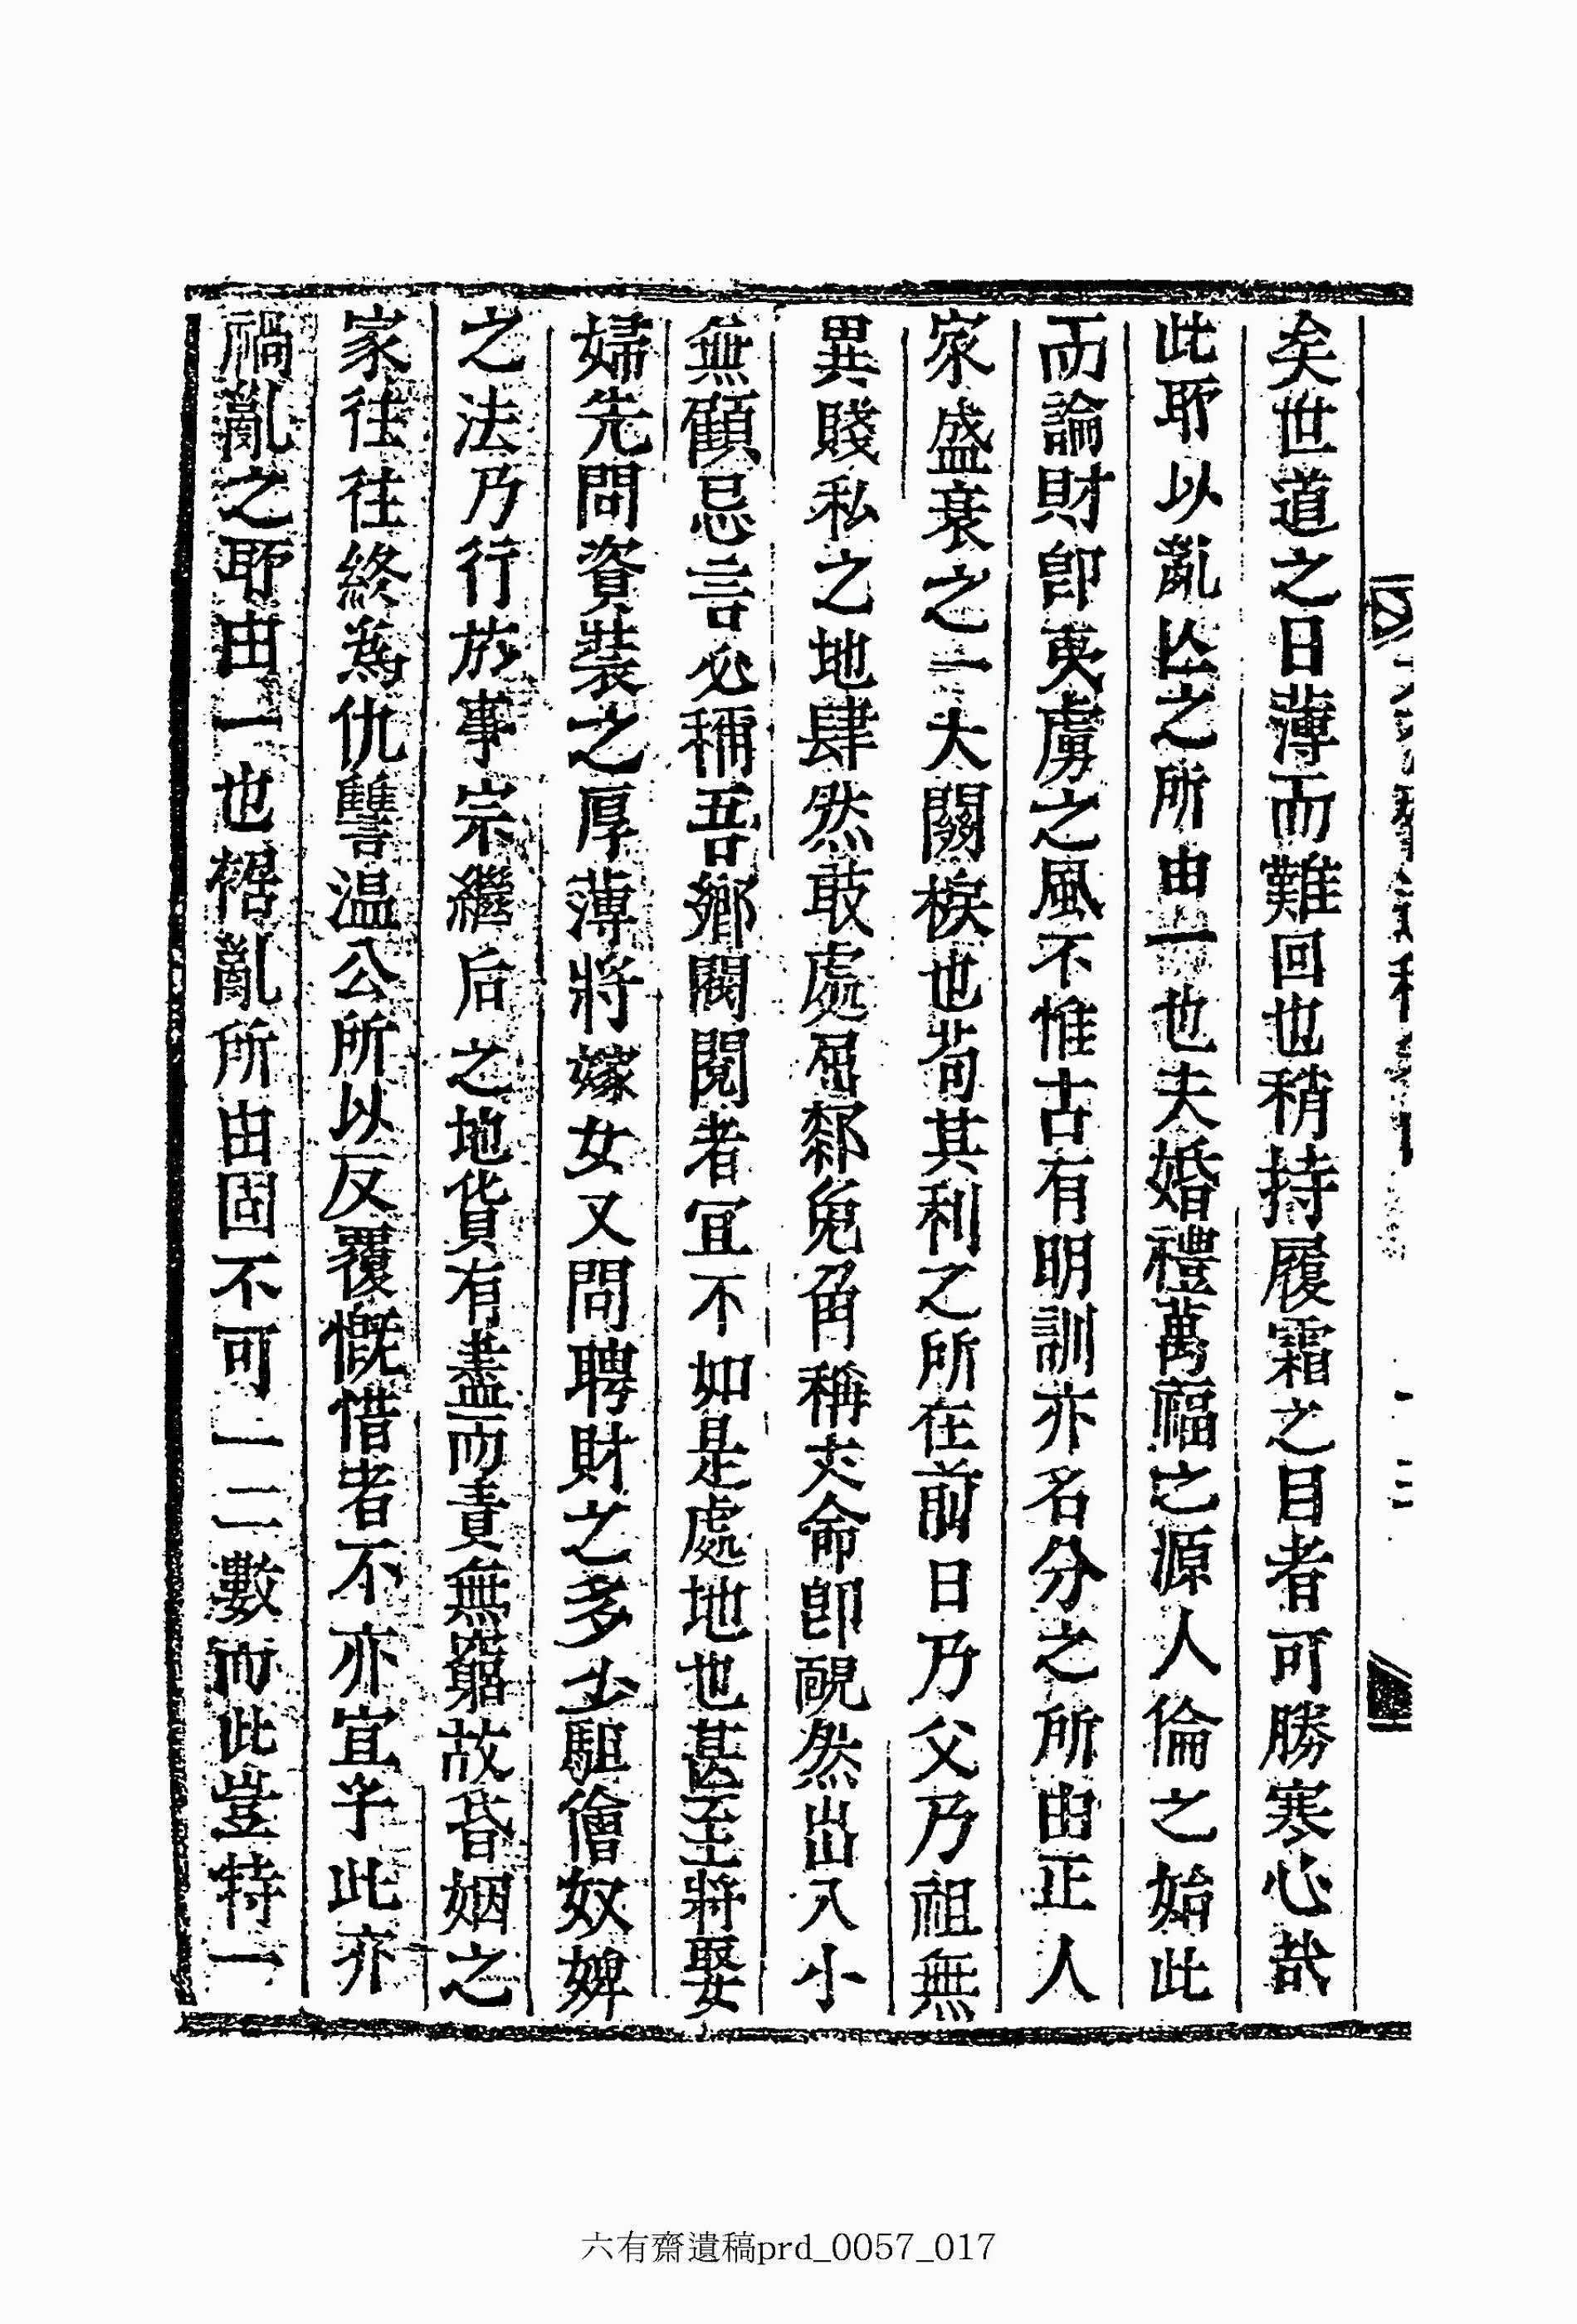 矣世道之日薄而難回也稍持履霜之目者可勝寒心哉
此耶以亂亾之所由一也夫婚禮萬福之源人倫之始此
而論財卽夷虜之風不惟古有明訓亦名分之所由正人
家盛衰之一大關棙也苟其利之所在前日乃父乃祖無
異賤私之地肆然敢處屈郄免角稱夫命卽靦然出入小
無顧忌言必稱吾鄕閥閱者冝不如是處地也甚至將娶
婦先問資裝之厚薄將嫁女又問聘財之多少駔儈奴婢
之法乃行於事宗繼后之地貨有盡而責無窮故昏姻之
家往往終爲仇讐温公所以反覆慨惜者不亦宜乎此亦
禍亂之耶由一也禍亂所由固不可一二數而此豈特一
六有齋遺稿prd_0057_017